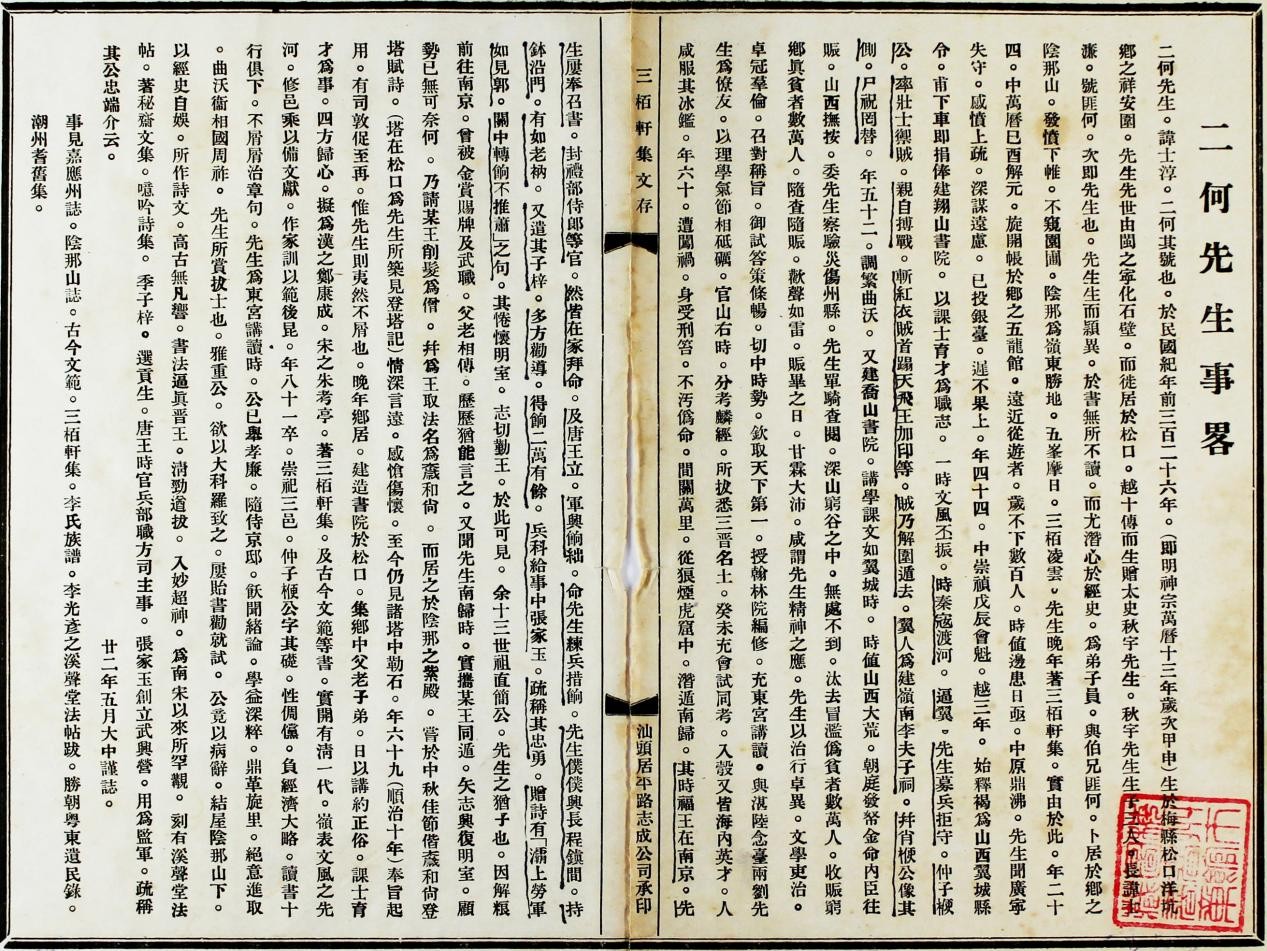 二何先生事畧
二何先生。諱士淳。二何其號也。於民國紀年前三百二十六年。（即明神宗萬曆十三年歲次甲申）生於梅縣松口洋坑
鄉之祥安圍。先生先世由閩之寧化石壁。而徙居於松口。越十傳而生贈太史秋宇先生。秋宇先生生子三人。長諱士
濂。號匪何。次即先生也。先生生而頴異。於書無所不讀。而尤潛心於經史。爲弟子員。與伯兄匪何。卜居於鄉之
陰那山。發憤下帷。不窺園圃。陰那爲嶺東勝地。五峯摩日。三栢凌雲。先生晚年著三栢軒集。實由於此。年二十
四。中萬曆己酉解元。旋開帳於鄉之五龍館。遠近從遊者。歲不下數百人。時值邊患日亟。中原鼎沸。先生聞廣寧
失守。感憤上疏。深謀遠慮。已投銀臺。遅不果上。年四十四。中崇禎戊辰會魁。越三年。始釋褐爲山西翼城縣
令。甫下車即捐俸建翔山書院。以課士育才爲職志。一時文風丕振。時秦寇渡河。逼翼。先生募兵拒守。仲子楩
公。率壯士禦賊。親自搏戰。斬紅衣賊首蹋天飛王加印等。賊乃解圍遁去。翼人爲建嶺南李夫子祠。幷肖楩公像其
側。尸祝罔替。年五十二。調繁曲沃。又建喬山書院。講學課文如翼城時。時值山西大荒。朝庭發帑金命內臣往
賑。山西撫按。委先生察驗災傷州縣。先生單騎查閱。深山窮谷之中。無處不到。汰去冒濫僞貧者數萬人。收賑窮
鄉眞貧者數萬人。隨查隨賑。歡聲如雷。賑畢之日。甘霖大沛。咸謂先生精神之應。先生以治行卓異。文學吏治。
卓冠羣倫。召對稱旨。御試答策條暢。切中時勢。欽取天下第一。授翰林院編修。充東宮講讀。與湛陸念臺兩劉先
生爲僚友。以理學氣節相砥礪。官山右時。分考麟經。所拔悉三晋名士。癸未充會試同考。入彀又皆海內英才。人
咸服其冰鑑。年六十。遭闖禍。身受刑笞。不汚僞命。間關萬里。從狼煙虎窟中。潛遁南歸。其時福王在南京。先
三栢軒集文存
汕頭居平路志成公司承印
生屢奉召書。封禮部侍郞等官。然皆在家拜命。及唐王立。軍興餉絀。命先生練兵措餉。先生僕僕興長程鎭間。持
鉢沿門。有如老衲。又遣其子梓。多方勸導。得餉二萬有餘。兵科給事中張家玉。疏稱其忠勇。贈詩有「灞上勞軍
如見郭。關中轉餉不推蕭」之句。其惓懷明室。志切勤王。於此可見。余十三世祖直簡公。先生之猶子也。因解粮
前往南京。曾被金賞賜牌及武職。父老相傳。歷歷猶能言之。又聞先生南歸時。實携某王同遁。矢志興復明室。顧
勢已無可奈何。乃請某王削髮爲僧。幷爲王取法名爲奯和尙。而居之於陰那之紫殿。嘗於中秋佳節偕奯和尙登
塔賦詩。（塔在松口爲先生所築見登塔記）情深言遠。感愴傷懷。至今仍見諸塔中勒石。年六十九（順治十年）奉旨起
用。有司敦促至再。惟先生則夷然不屑也。晚年鄉居。建造書院於松口。集鄉中父老子弟。日以講約正俗。課士育
才爲事。四方歸心。擬爲漢之鄭康成。宋之朱考亭。著三栢軒集。及古今文範等書。實開有淸一代。嶺表文風之先
河。修邑乘以備文獻。作家訓以範後昆。年八十一卒。崇祀三邑。仲子楩公字其礎。性倜儻。負經濟大略。讀書十
行俱下。不屑屑治章句。先生爲東宮講讀時。公已舉孝廉。隨侍京邸。飫聞緒論。學益深粹。鼎革旋里。絕意進取
。曲沃衞相國周祚。先生所賞拔士也。雅重公。欲以大科羅致之。屢貽書勸就試。公竟以病辭。結屋陰那山下。
以經史自娛。所作詩文。高古無凡響。書法逼眞晋王。淸勁遒拔。入妙超神。爲南宋以來所罕觀。刻有溪聲堂法
帖。著秘齋文集。噫吟詩集。季子梓。選貢生。唐王時官兵部職方司主事。張家玉創立武興營。用爲監軍。疏稱
其公忠端介云。
廿二年五月大中謹誌。
事見嘉應州誌。陰那山誌。古今文範。三栢軒集。李氏族譜。李光彥之溪聲堂法帖跋。勝朝粤東遺民錄。
潮州耆舊集。